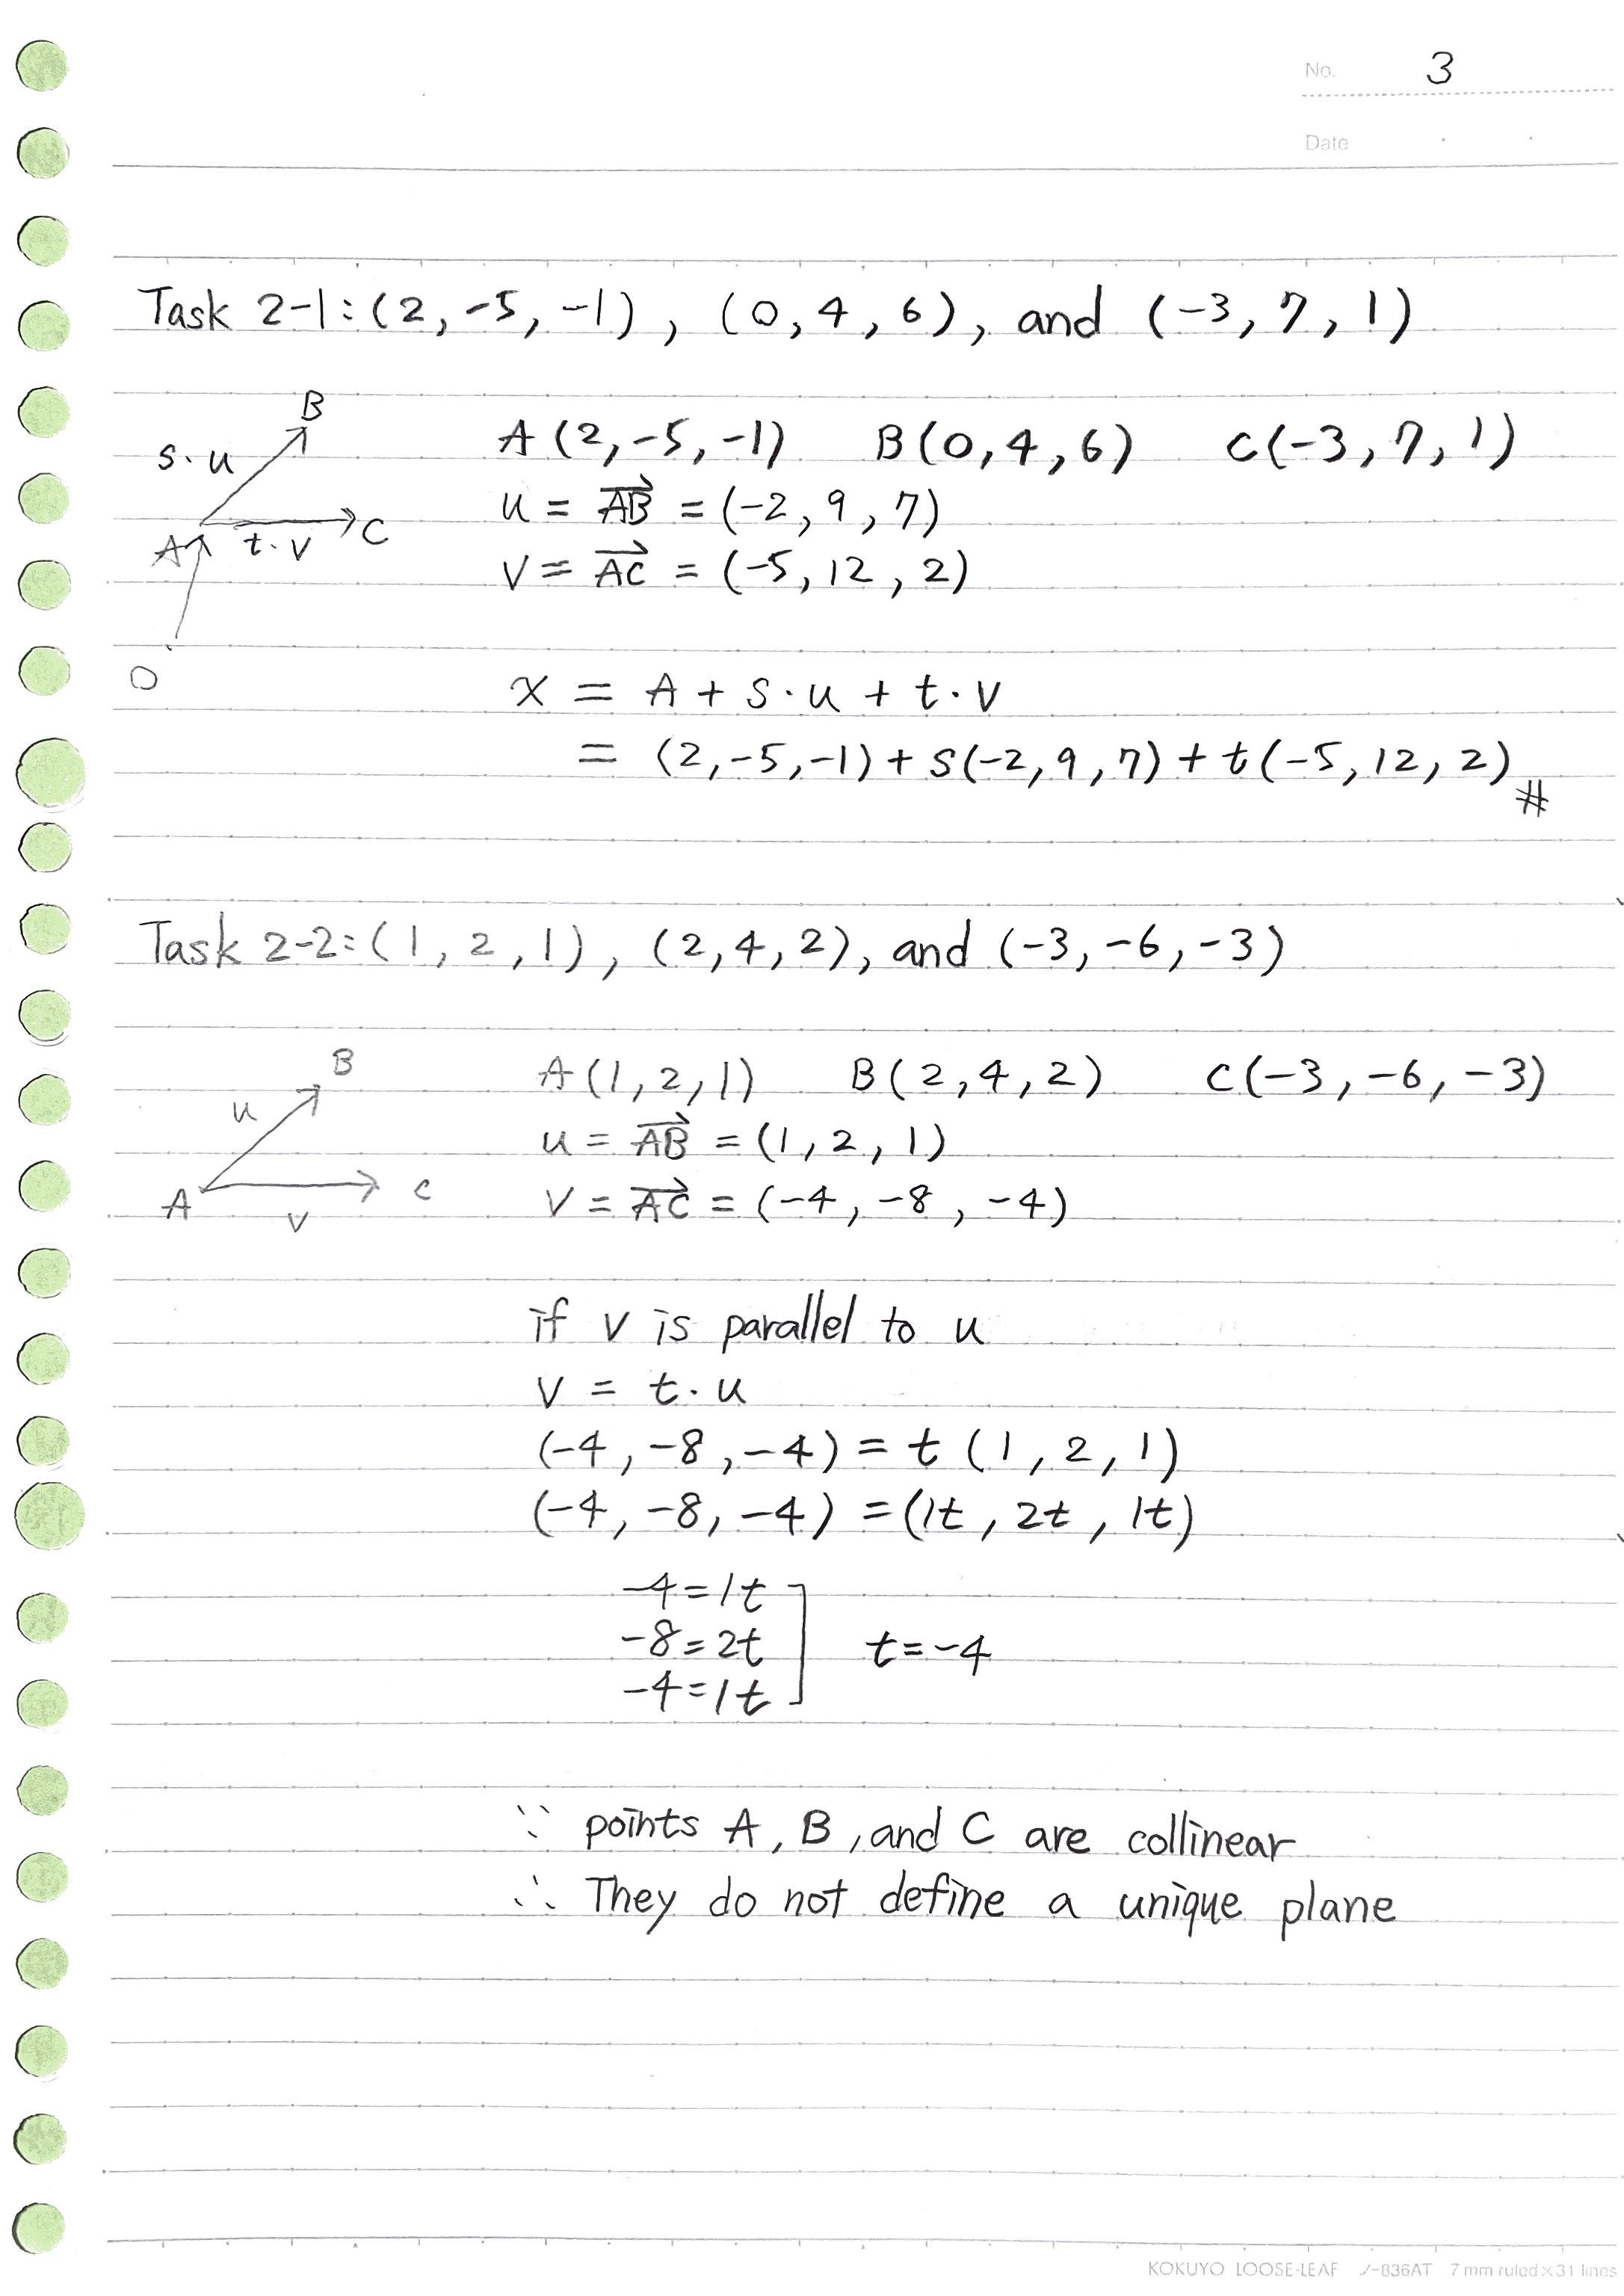 No. 3
Date
Task 2-1: (2, -5, -1), (0, 4, 6), and (-3, 7, 1)
B
s·u
A
t·v
C
O
A(2, -5, -1) B(0, 4, 6) C(-3, 7, 1)
u = AB→ = (-2, 9, 7)
v = AC→ = (-5, 12, 2)
x = A + s·u + t·v
= (2, -5, -1) + s(-2, 9, 7) + t(-5, 12, 2) #
Task 2-2: (1, 2, 1), (2, 4, 2), and (-3, -6, -3)
B
u
A
v
C
A(1, 2, 1) B(2, 4, 2) C(-3, -6, -3)
u = AB→ = (1, 2, 1)
v = AC→ = (-4, -8, -4)
if v is parallel to u
v = t·u
(-4, -8, -4) = t(1, 2, 1)
(-4, -8, -4) = (1t, 2t, 1t)
-4 = 1t
-8 = 2t
-4 = 1t
t = -4
∵ points A, B, and C are collinear
∴ They do not define a unique plane
KOKUYO LOOSE-LEAF ノ-836AT 7 mm ruled × 31 lines